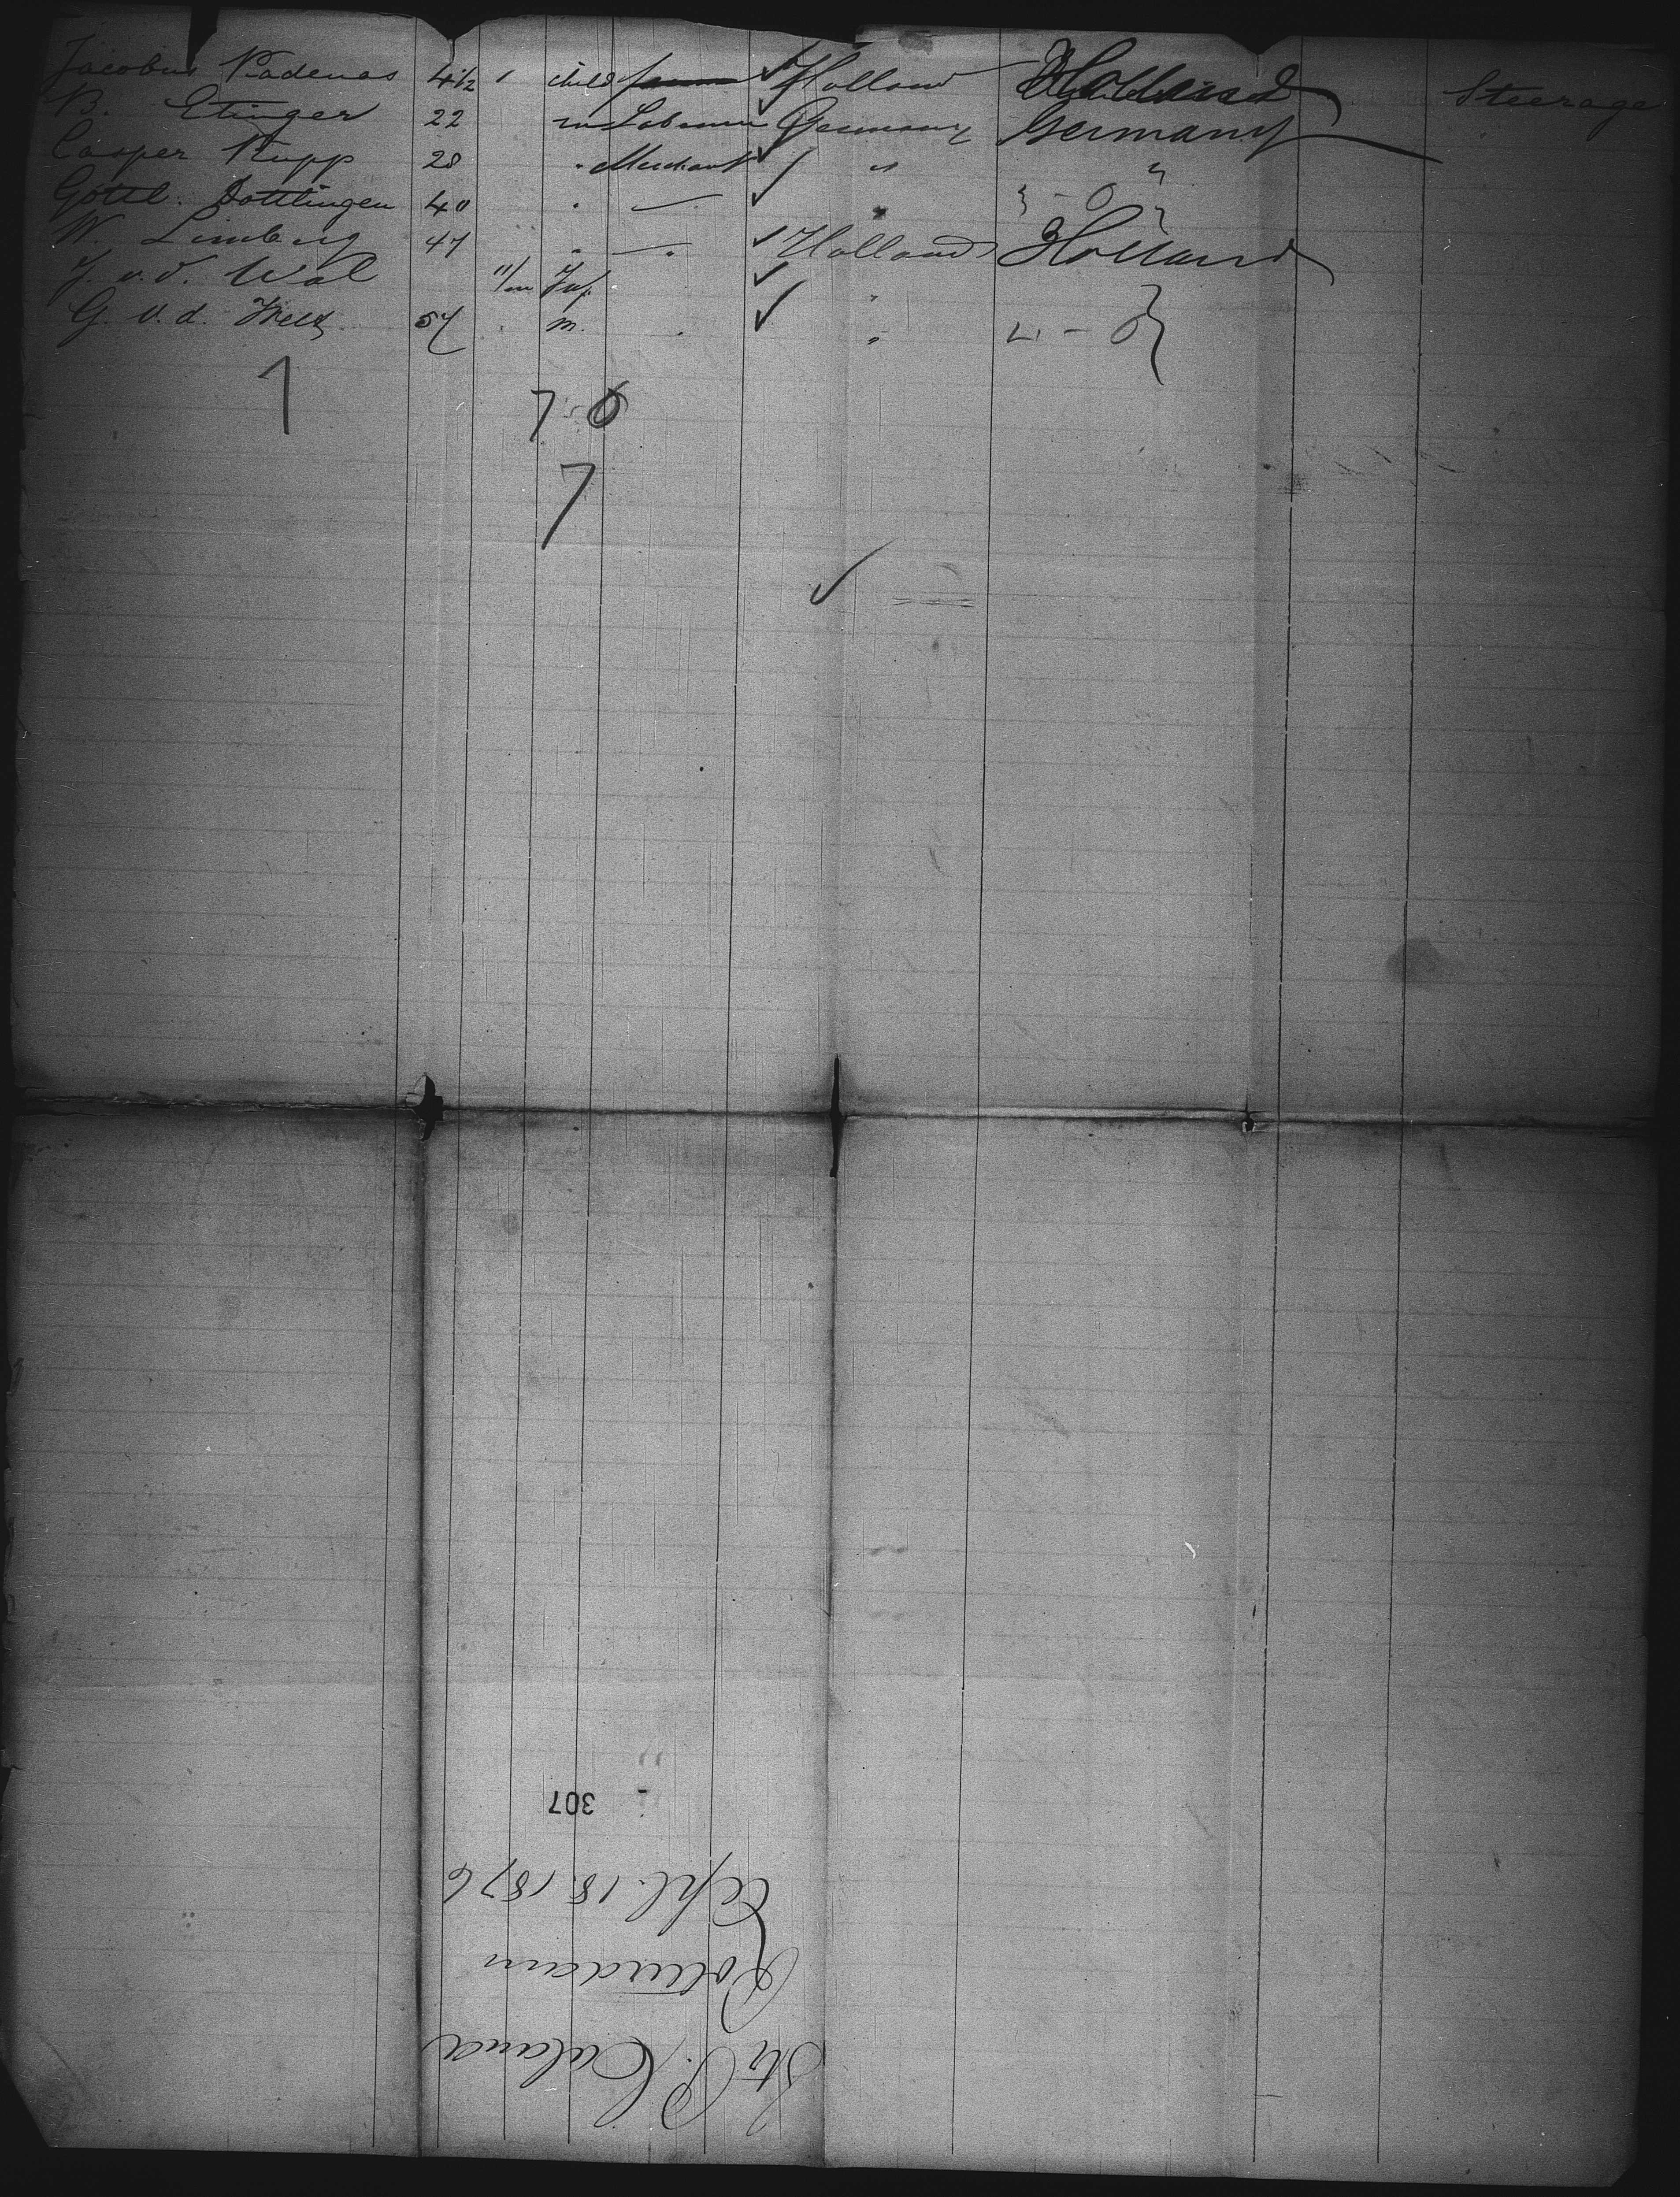 Jacobus Kadenas 4 1/2 child Holland Holland Steerage
B. Etinger 22 m Laborer Germany Germany
Casper Rupp 28 " Merchant " "
Gottl. Dottlingen 40 " — " "
W. Limberg 47 " — " Holland Holland
J. v. d. Wal 11/m Inf. "
G. v. d. 54 m. " "
1
7 0
7
307
Str P. Caland
Rotterdam
Sept. 18 1876